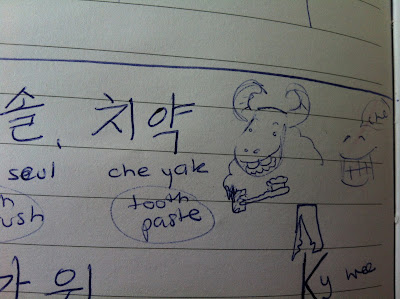 솔, 치약
seul che yak
tooth
ush paste
가위
Ky wee